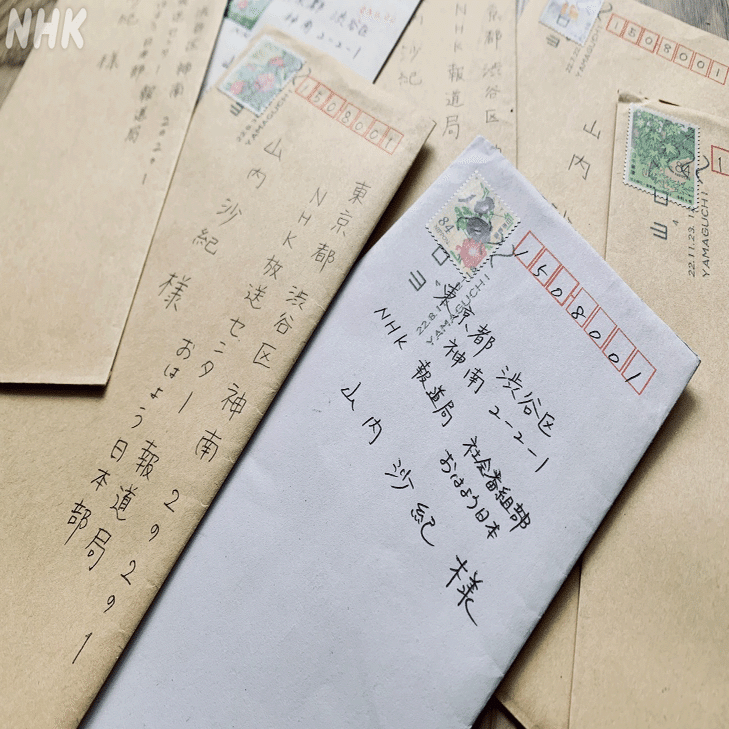 NHK
1508001
東京都渋谷区
神南2-2-1
NHK 報道局 社会番組部
おはよう日本
山内 沙紀 様
84
山口
22.8.
YAMAGUCHI
1508001
東京都 渋谷区 神南 2の2の1
NHK放送センター 報道局
おはよう日本部
山内 沙紀 様
山口
YAMAGUCHI
渋谷区神南 2の2の1
報道局
様
神南 2-2-1
東京都渋谷区
NHK報道局
沙紀
1508001
山内
YAMAGUCHI
84
山口
22.11.23.
YAMAGUCHI